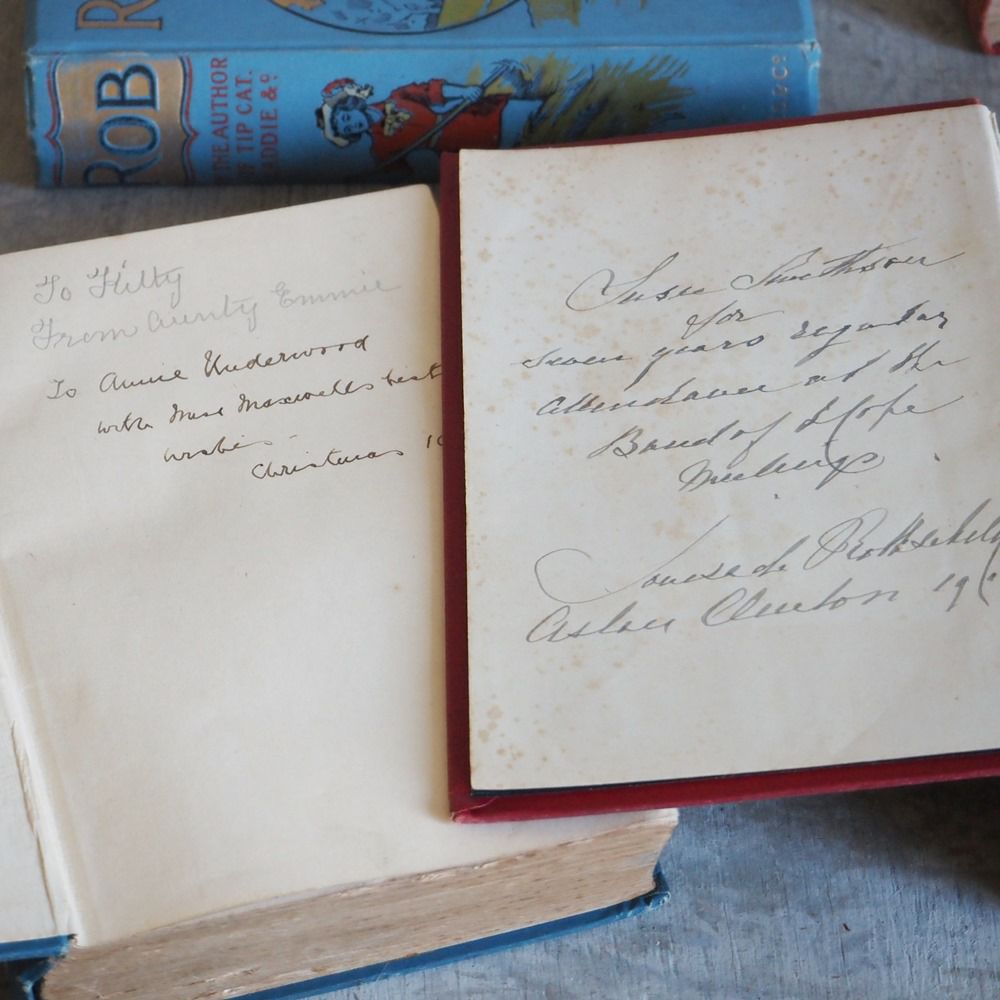 ROB
THE AUTHOR
OF TIP CAT.
LADDIE & Co
To Kitty
From Aunty Emmie
To Annie Underwood
with Miss Maxwell's best
wishes
Christmas 1
Susie
for
seven years regular
attendance at the
Band of Hope
Meeting
Louisa de Rothschild
Aston Clinton 19